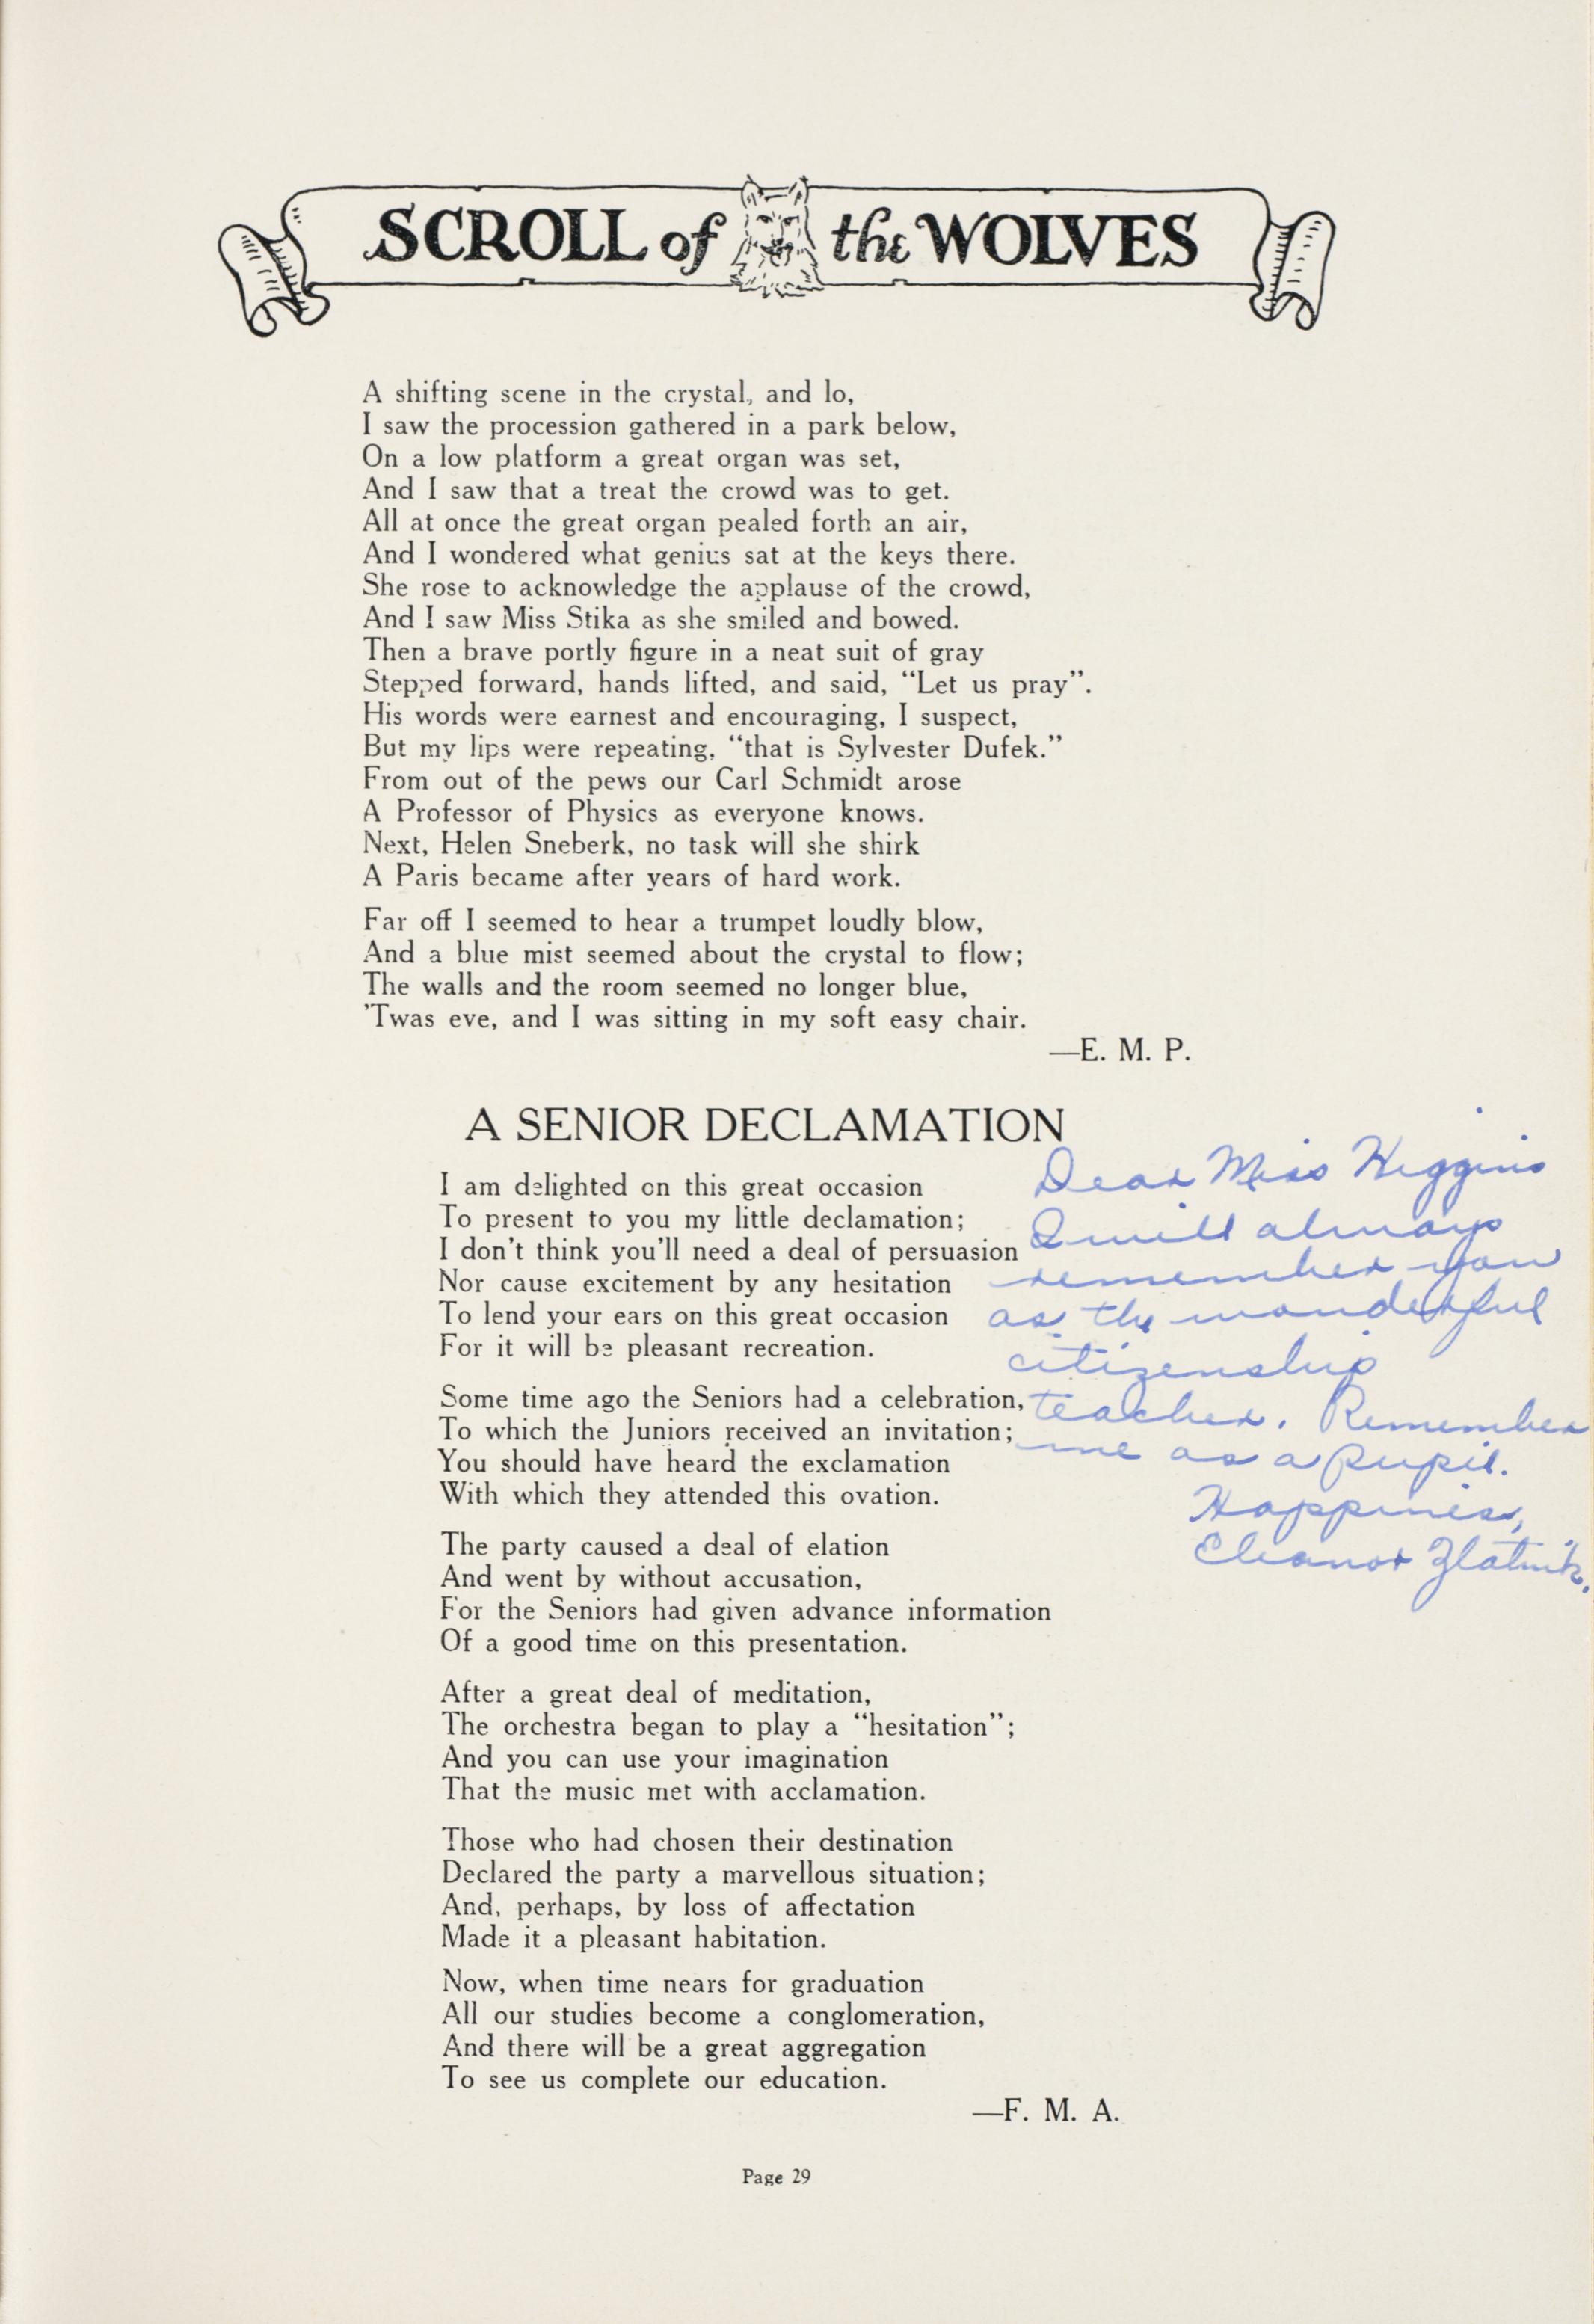 SCROLL of the WOLVES
A shifting scene in the crystal, and lo,
I saw the procession gathered in a park below,
On a low platform a great organ was set,
And I saw that a treat the crowd was to get.
All at once the great organ pealed forth an air,
And I wondered what genius sat at the keys there.
She rose to acknowledge the applause of the crowd,
And I saw Miss Stika as she smiled and bowed.
Then a brave portly figure in a neat suit of gray
Stepped forward, hands lifted, and said, “Let us pray”.
His words were earnest and encouraging, I suspect,
But my lips were repeating, “that is Sylvester Dufek.”
From out of the pews our Carl Schmidt arose
A Professor of Physics as everyone knows.
Next, Helen Sneberk, no task will she shirk
A Paris became after years of hard work.
Far off I seemed to hear a trumpet loudly blow,
And a blue mist seemed about the crystal to flow;
The walls and the room seemed no longer blue,
'Twas eve, and I was sitting in my soft easy chair.
—E. M. P.
A SENIOR DECLAMATION
I am delighted on this great occasion
To present to you my little declamation;
I don't think you'll need a deal of persuasion
Nor cause excitement by any hesitation
To lend your ears on this great occasion
For it will be pleasant recreation.
Some time ago the Seniors had a celebration,
To which the Juniors received an invitation;
You should have heard the exclamation
With which they attended this ovation.
The party caused a deal of elation
And went by without accusation,
For the Seniors had given advance information
Of a good time on this presentation.
After a great deal of meditation,
The orchestra began to play a “hesitation”;
And you can use your imagination
That the music met with acclamation.
Those who had chosen their destination
Declared the party a marvellous situation;
And, perhaps, by loss of affectation
Made it a pleasant habitation.
Now, when time nears for graduation
All our studies become a conglomeration,
And there will be a great aggregation
To see us complete our education.
—F. M. A.
Dear Miss Higgins
I will always
remember you
as the wonderful
citizenship
teacher. Remember
me as a pupil.
Happiness,
Eleanor Zlatnik.
Page 29